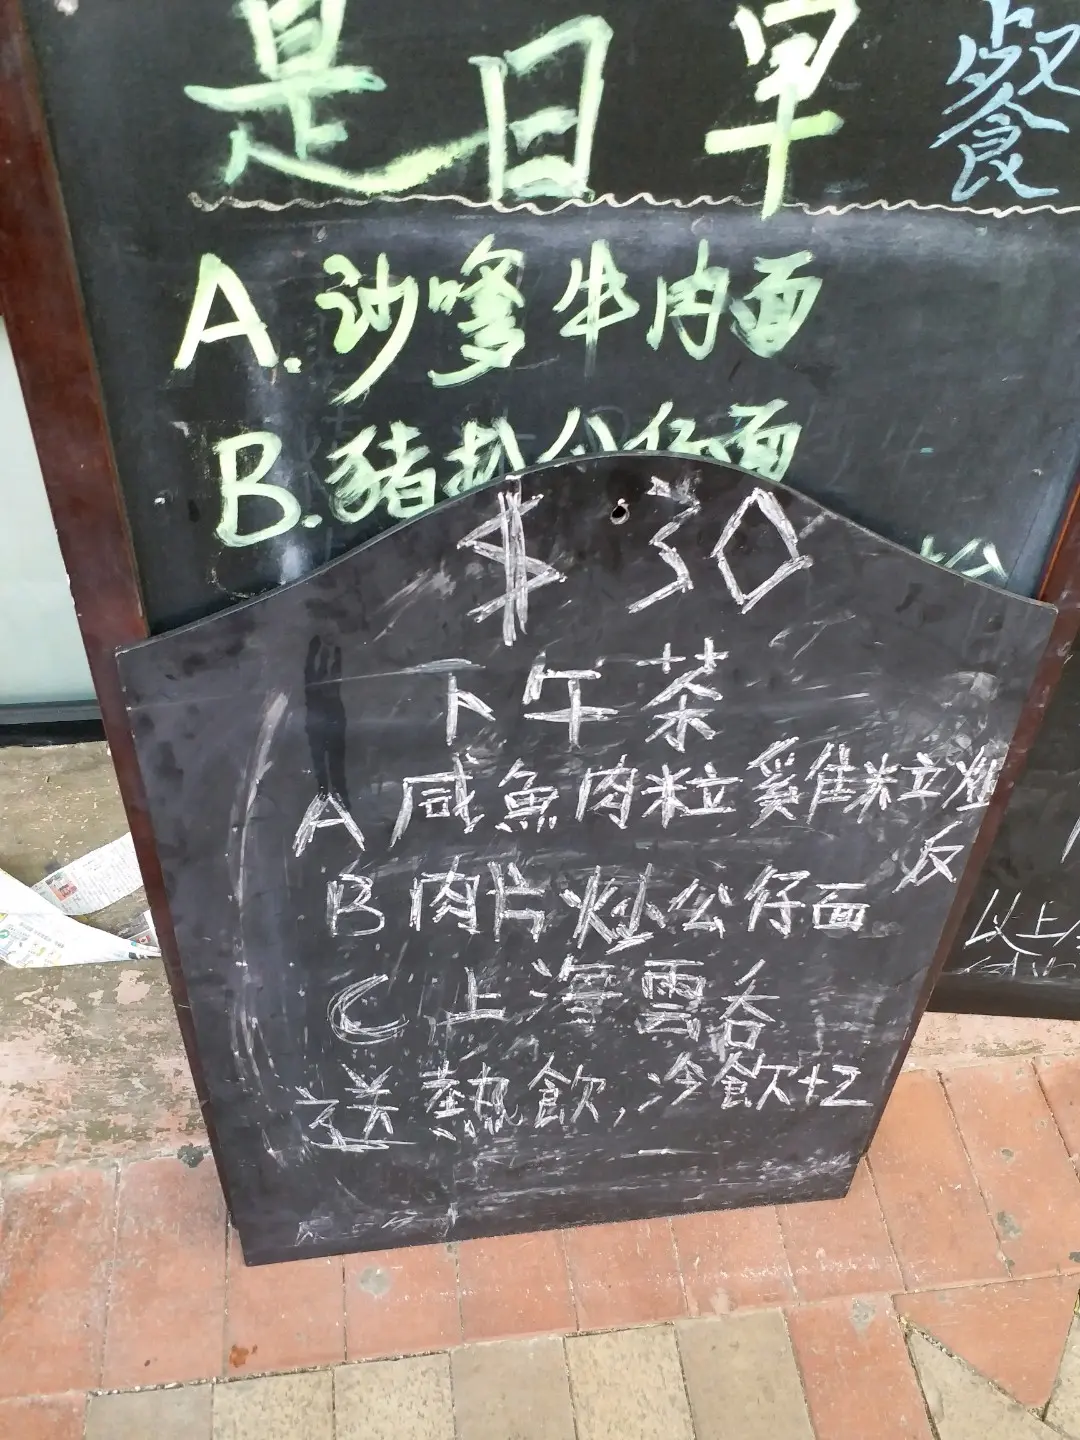 是日早餐
A. 沙嗲牛肉面
B. 豬扒公仔面
$30
下午茶
A 咸魚肉粒雞粒炒
反
B 肉片炒公仔面
C 上海雲吞
送熱飲,冷飲+2
以上